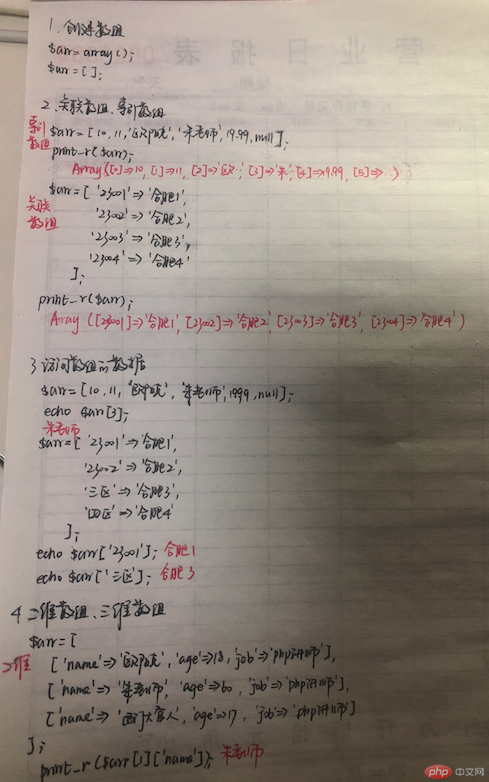 营业日报表
1. 创建数组
$arr = array();
$arr = [];
2. 关联数组、索引数组
索引数组
$arr = [10, 11, '欧阳克', '朱老师', 19.99, null];
print_r($arr);
Array([0]=>10, [1]=>11, [2]=>'欧', [3]=>'朱', [4]=>19.99, [5]=> )
关联数组
$arr = ['23001' => '合肥1',
'23002' => '合肥2',
'23003' => '合肥3',
'23004' => '合肥4'
];
print_r($arr);
Array ([23001]=>'合肥1', [23002]=>'合肥2', [23003]=>'合肥3', [23004]=>'合肥4')
3 访问数组的数据
$arr = [10, 11, '欧阳克', '朱老师', 19.99, null];
echo $arr[3];
朱老师
$arr = ['23001' => '合肥1',
'23002' => '合肥2',
'三区' => '合肥3',
'四区' => '合肥4'
];
echo $arr['23001']; 合肥1
echo $arr['三区']; 合肥3
4 二维数组、三维数组
$arr = [
二维
['name' => '欧阳克', 'age' => 18, 'job' => 'php讲师'],
['name' => '朱老师', 'age' => 60, 'job' => 'php讲师'],
['name' => '西门大官人', 'age' => 17, 'job' => 'php讲师']
];
print_r($arr[1]['name']); 朱老师
php 中文网